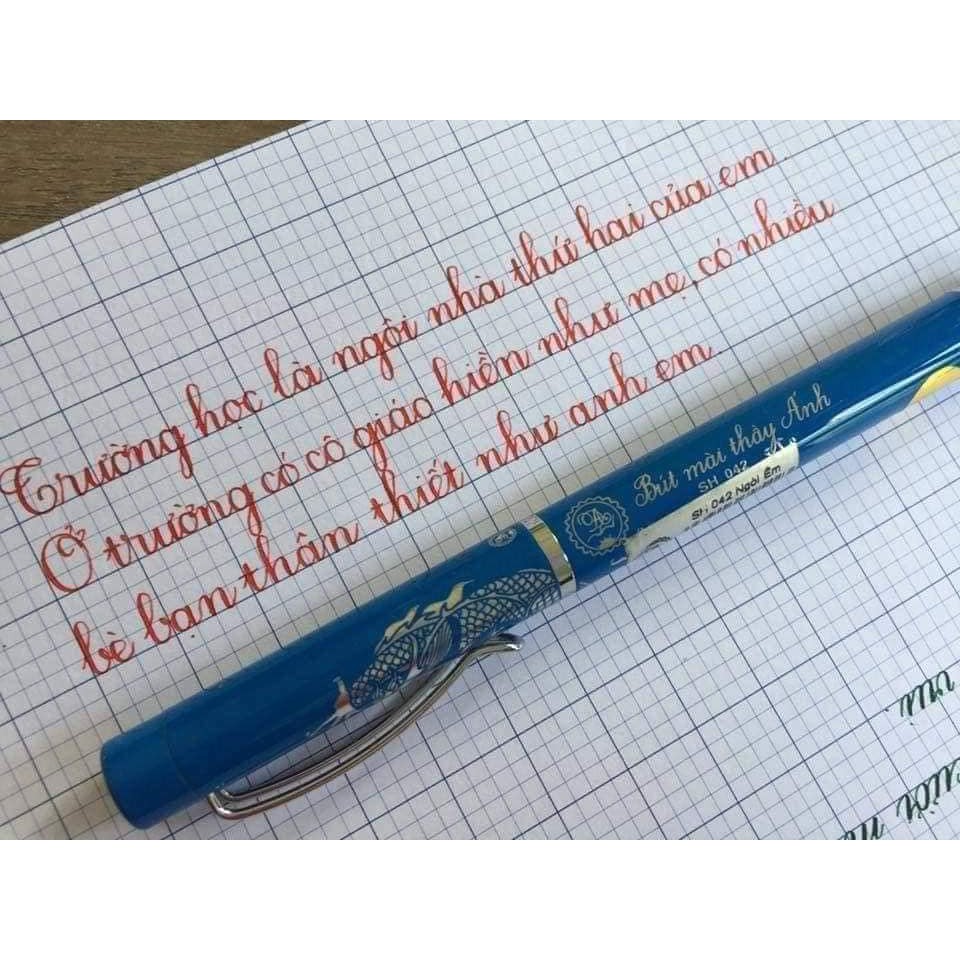 Trường học là ngôi nhà thứ hai của em.
Ở trường có cô giáo hiền như mẹ, có nhiều
bè bạn thân thiết như anh em.
Bút mài thầy Ánh
SH 042
SH. 042 Ngòi Êm